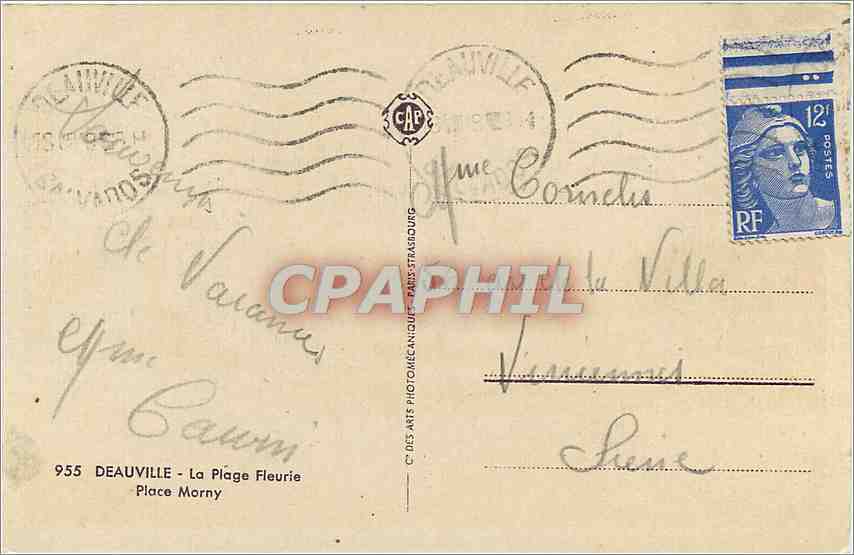 DEAUVILLE
CALVADOS
DEAUVILLE
CAP
12F
POSTES
RF
Souvenir
de Vacances
Mme
Mme Cornelis
de la Villa
Vincennes
Seine
CPAPHIL
Cie DES ARTS PHOTOMÉCANIQUES - PARIS-STRASBOURG
955 DEAUVILLE - La Plage Fleurie
Place Morny